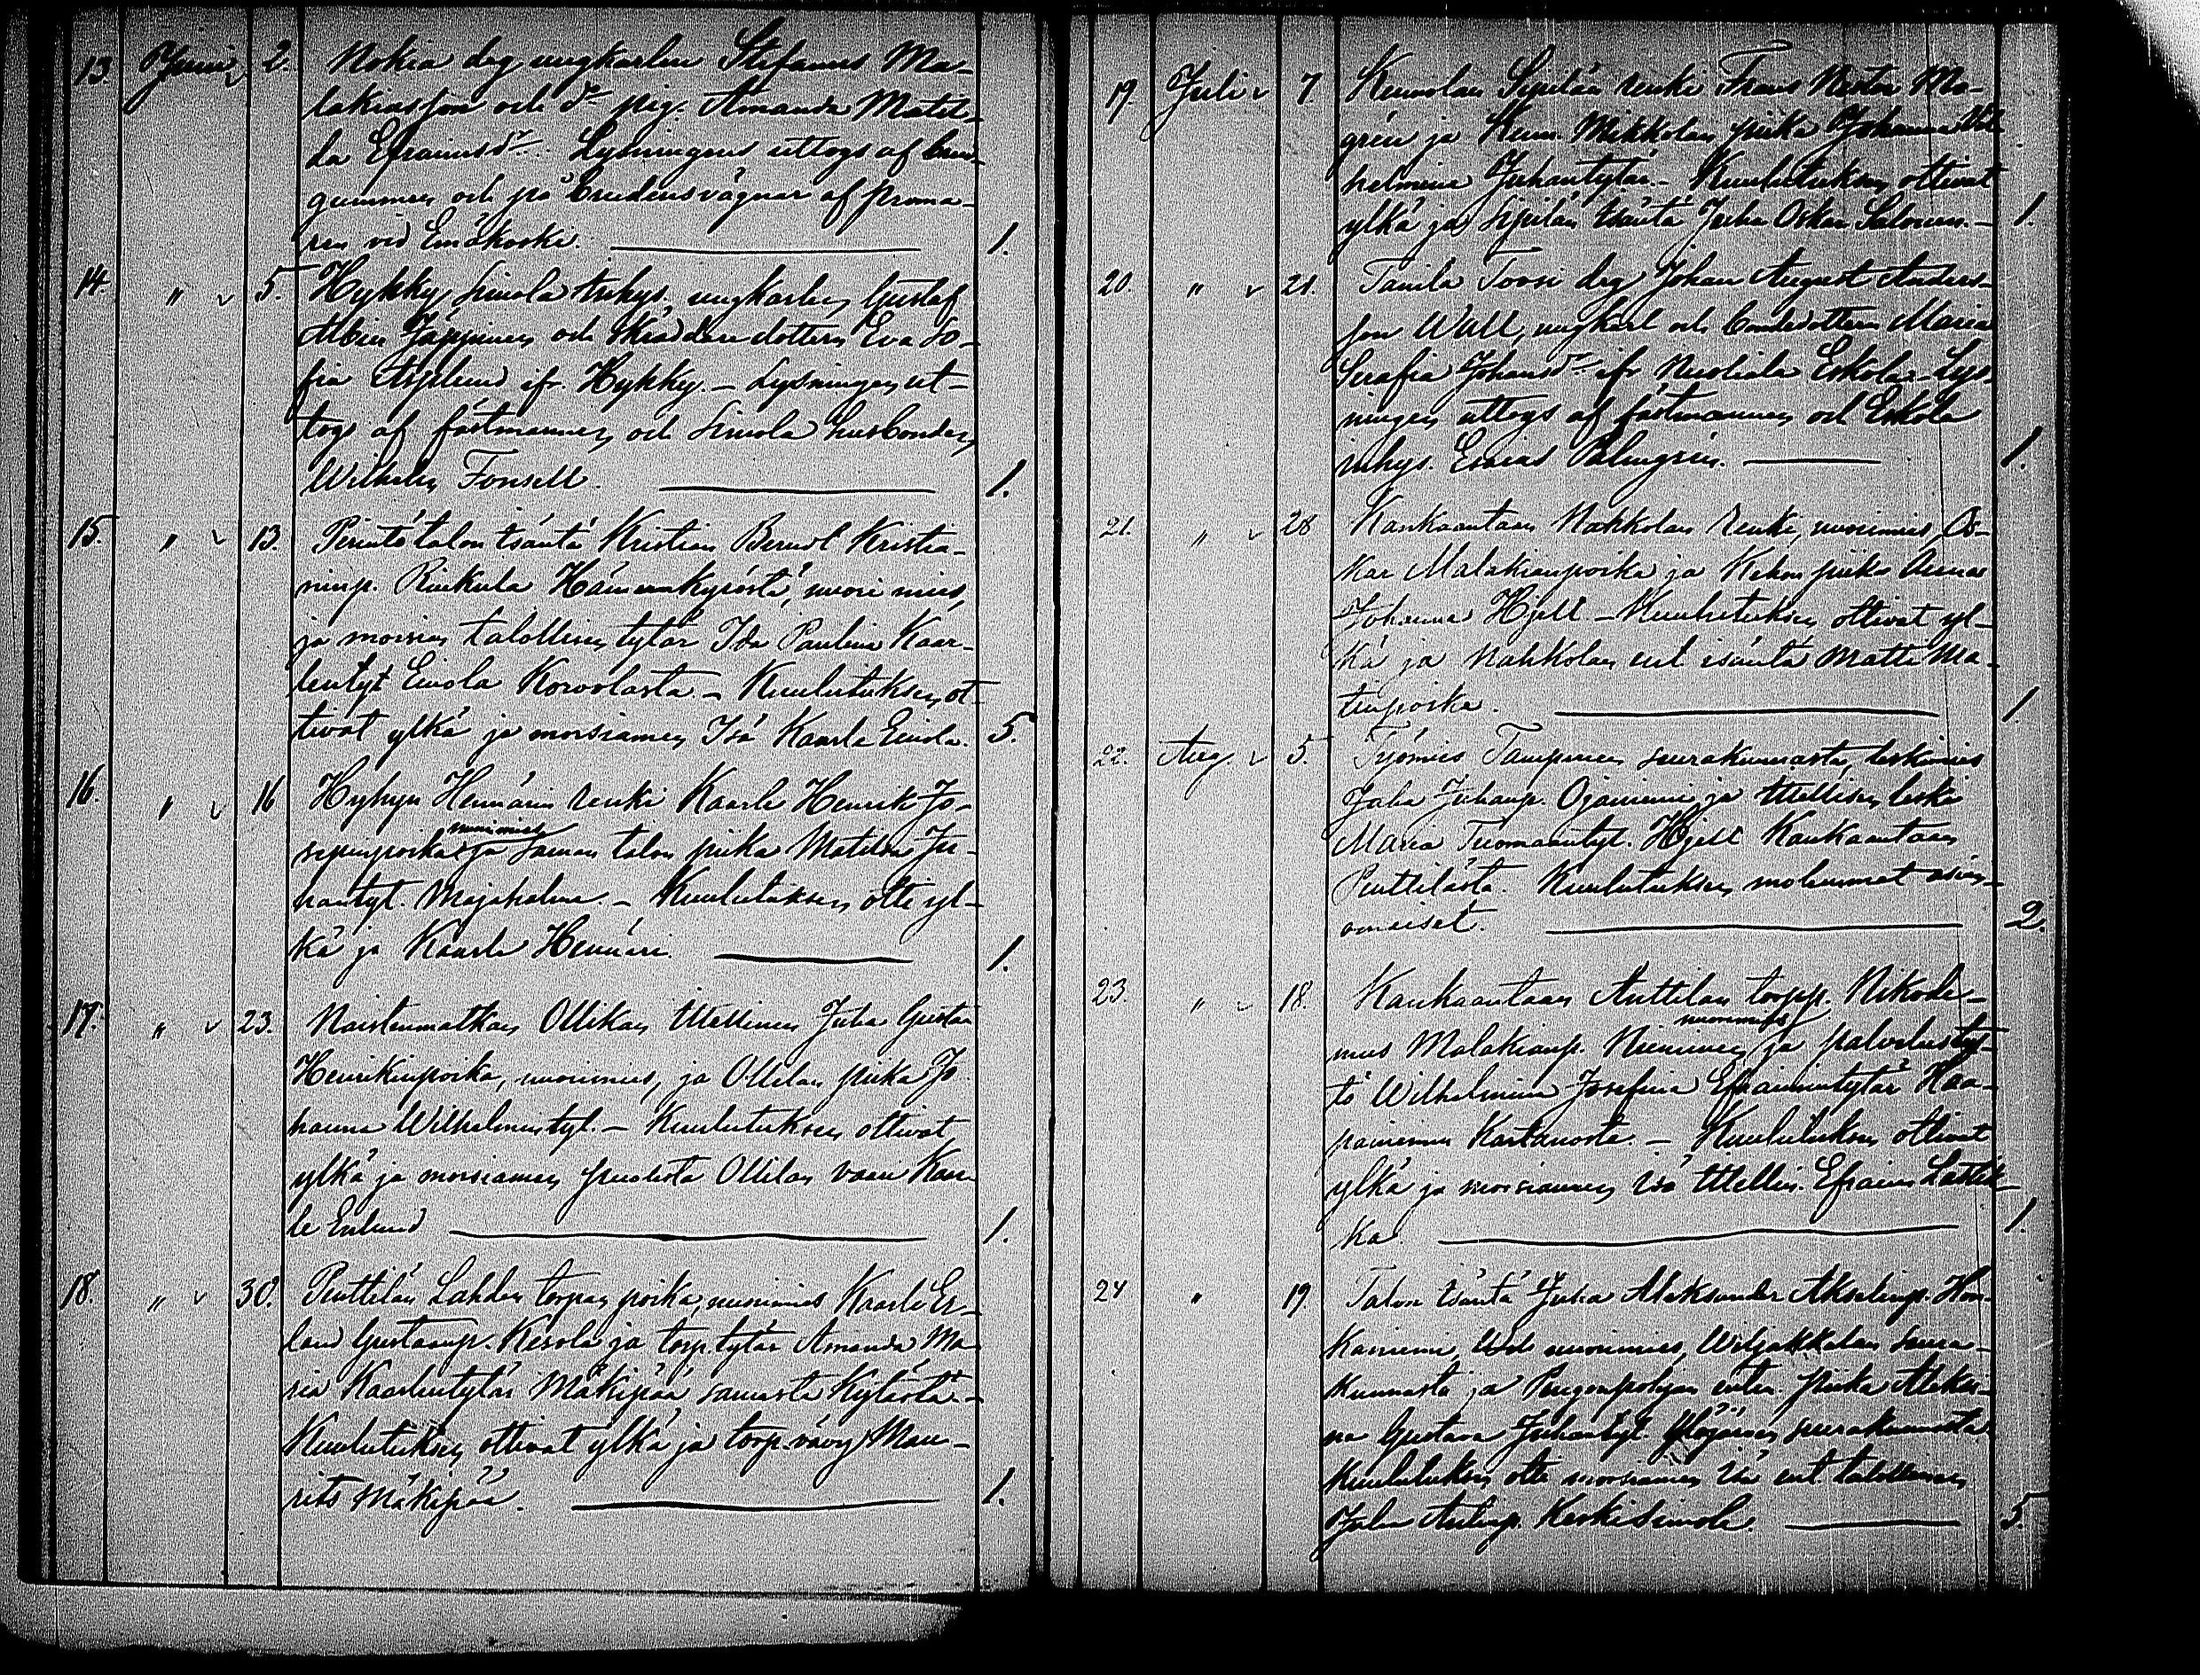 13. Juni 2. Nokia drg ungkarlen Stefanus Ma-
lakiasson och dº pig. Amanda Matil-
da Efraimsdr. Lysningen uttogs af brud-
gummen och på brudens vägnar af
ren vid Emäkoski. 1.
14. " 5. Hykky Simola inhys. ungkarlen Gustaf
Albin Jäppinen och Skräddaredottern Eva So-
fia Asplund ifr. Hykky. – Lysningen ut-
togs af fästmannen och Simola husbonden
Wilhelm Fonsell. 1.
15. " 13. Perintötalon isäntä Kristian Kristia-
ninp. Rinkula Hämeenkyröstä, nuori mies,
ja morsian talollisen tytär Ida Paulina Kaar-
lentyt Einola Korvolasta – Kuulutuksen ot-
tivat ylkä ja morsiamen Isä Kaarla Einola. 5.
16. " 16 Hyhyn Heinärin renki Kaarle Henrik Jo-
sepinpoika nuorimies ja saman talon piika Matilda Ju-
hantyt. Majahalme. – Kuulutuksen otti yl-
kä ja Kaarle Heinäri. 1.
17. " 23. Naistenmatkan Ollikan itsellinen Juha Gustaa
Henrikinpoika, nuorimies, ja Ollilan piika Jo-
hanna Wilhelmintyt. – Kuulutuksen ottivat
ylkä ja morsiamen puolesta Ollilan vaari Kaar-
le Enlund 1.
18. " 30. Penttilän Lahden torpan poika, nuorimies Kaarle Er-
land Gustaanp. Kesola ja torp. tytär Amanda Ma-
ria Kaarlentytär Mäkipää samasta Kylästä. –
Kuulutuksen ottivat ylkä ja torp. vävy Mau-
rits Mäkipää. 1.
19. Juli 7. Sipilän renki Frans Nestor Ma-
grén ja Mikkolan piika Johanna Wil-
helmina Juhantytär. – Kuulutuksen ottivat
ylkä ja Sipilän Isäntä Juha Oskar Salonen. – 1.
20. " 21. Tanila Toosi drg Johan August Anders-
son Wall, ungkarl och bondedottern Maria
Serafia Johansdr ifr Eskola – Lys-
ningen uttogs af fästmannen och Eskola
inhys. Esaias Palmgrén. 1.
21. " 28 Kankaantaan Nahkolan renki, nuorimies, Os-
kar Malakianpoika ja piika
Johanna Hjell. – Kuulutuksen ottivat yl-
kä ja Nahkolan ent isäntä Matti Ma-
tinpoika. 1.
22. Aug. 5. Työmies Tampereen seurakunnasta, leskimies
Juha Juhanp. Ojaniemi ja itsellisen leski
Maria Tuomaantyt. Hjell Kankaantaan
Penttilästä. Kuulutuksen molemmat asian-
omaiset. 2.
23. " 18. Kankaantaan Anttilan torpp. Nikode-
mus Malakianp. Nieminen nuorimies ja palvelustyt-
tö Wilhelmina Josefina Efraimintytär Haa-
paniemen Kartanosta. – Kuulutuksen ottivat
ylkä ja morsiamen isä itsellin. Efraim
ka. 1.
24 " 19. Talon isäntä Juha Aleksander Akselinp. Hon-
kaniemi, nuorimies, Wiljakkalan seura-
kunnasta ja Pengonpohjan piika
na Gustava Juhantyt. Ylöjärven seurakunnasta
Kuulutuksen otti morsiamen isä ent talollinen
Juha 5.